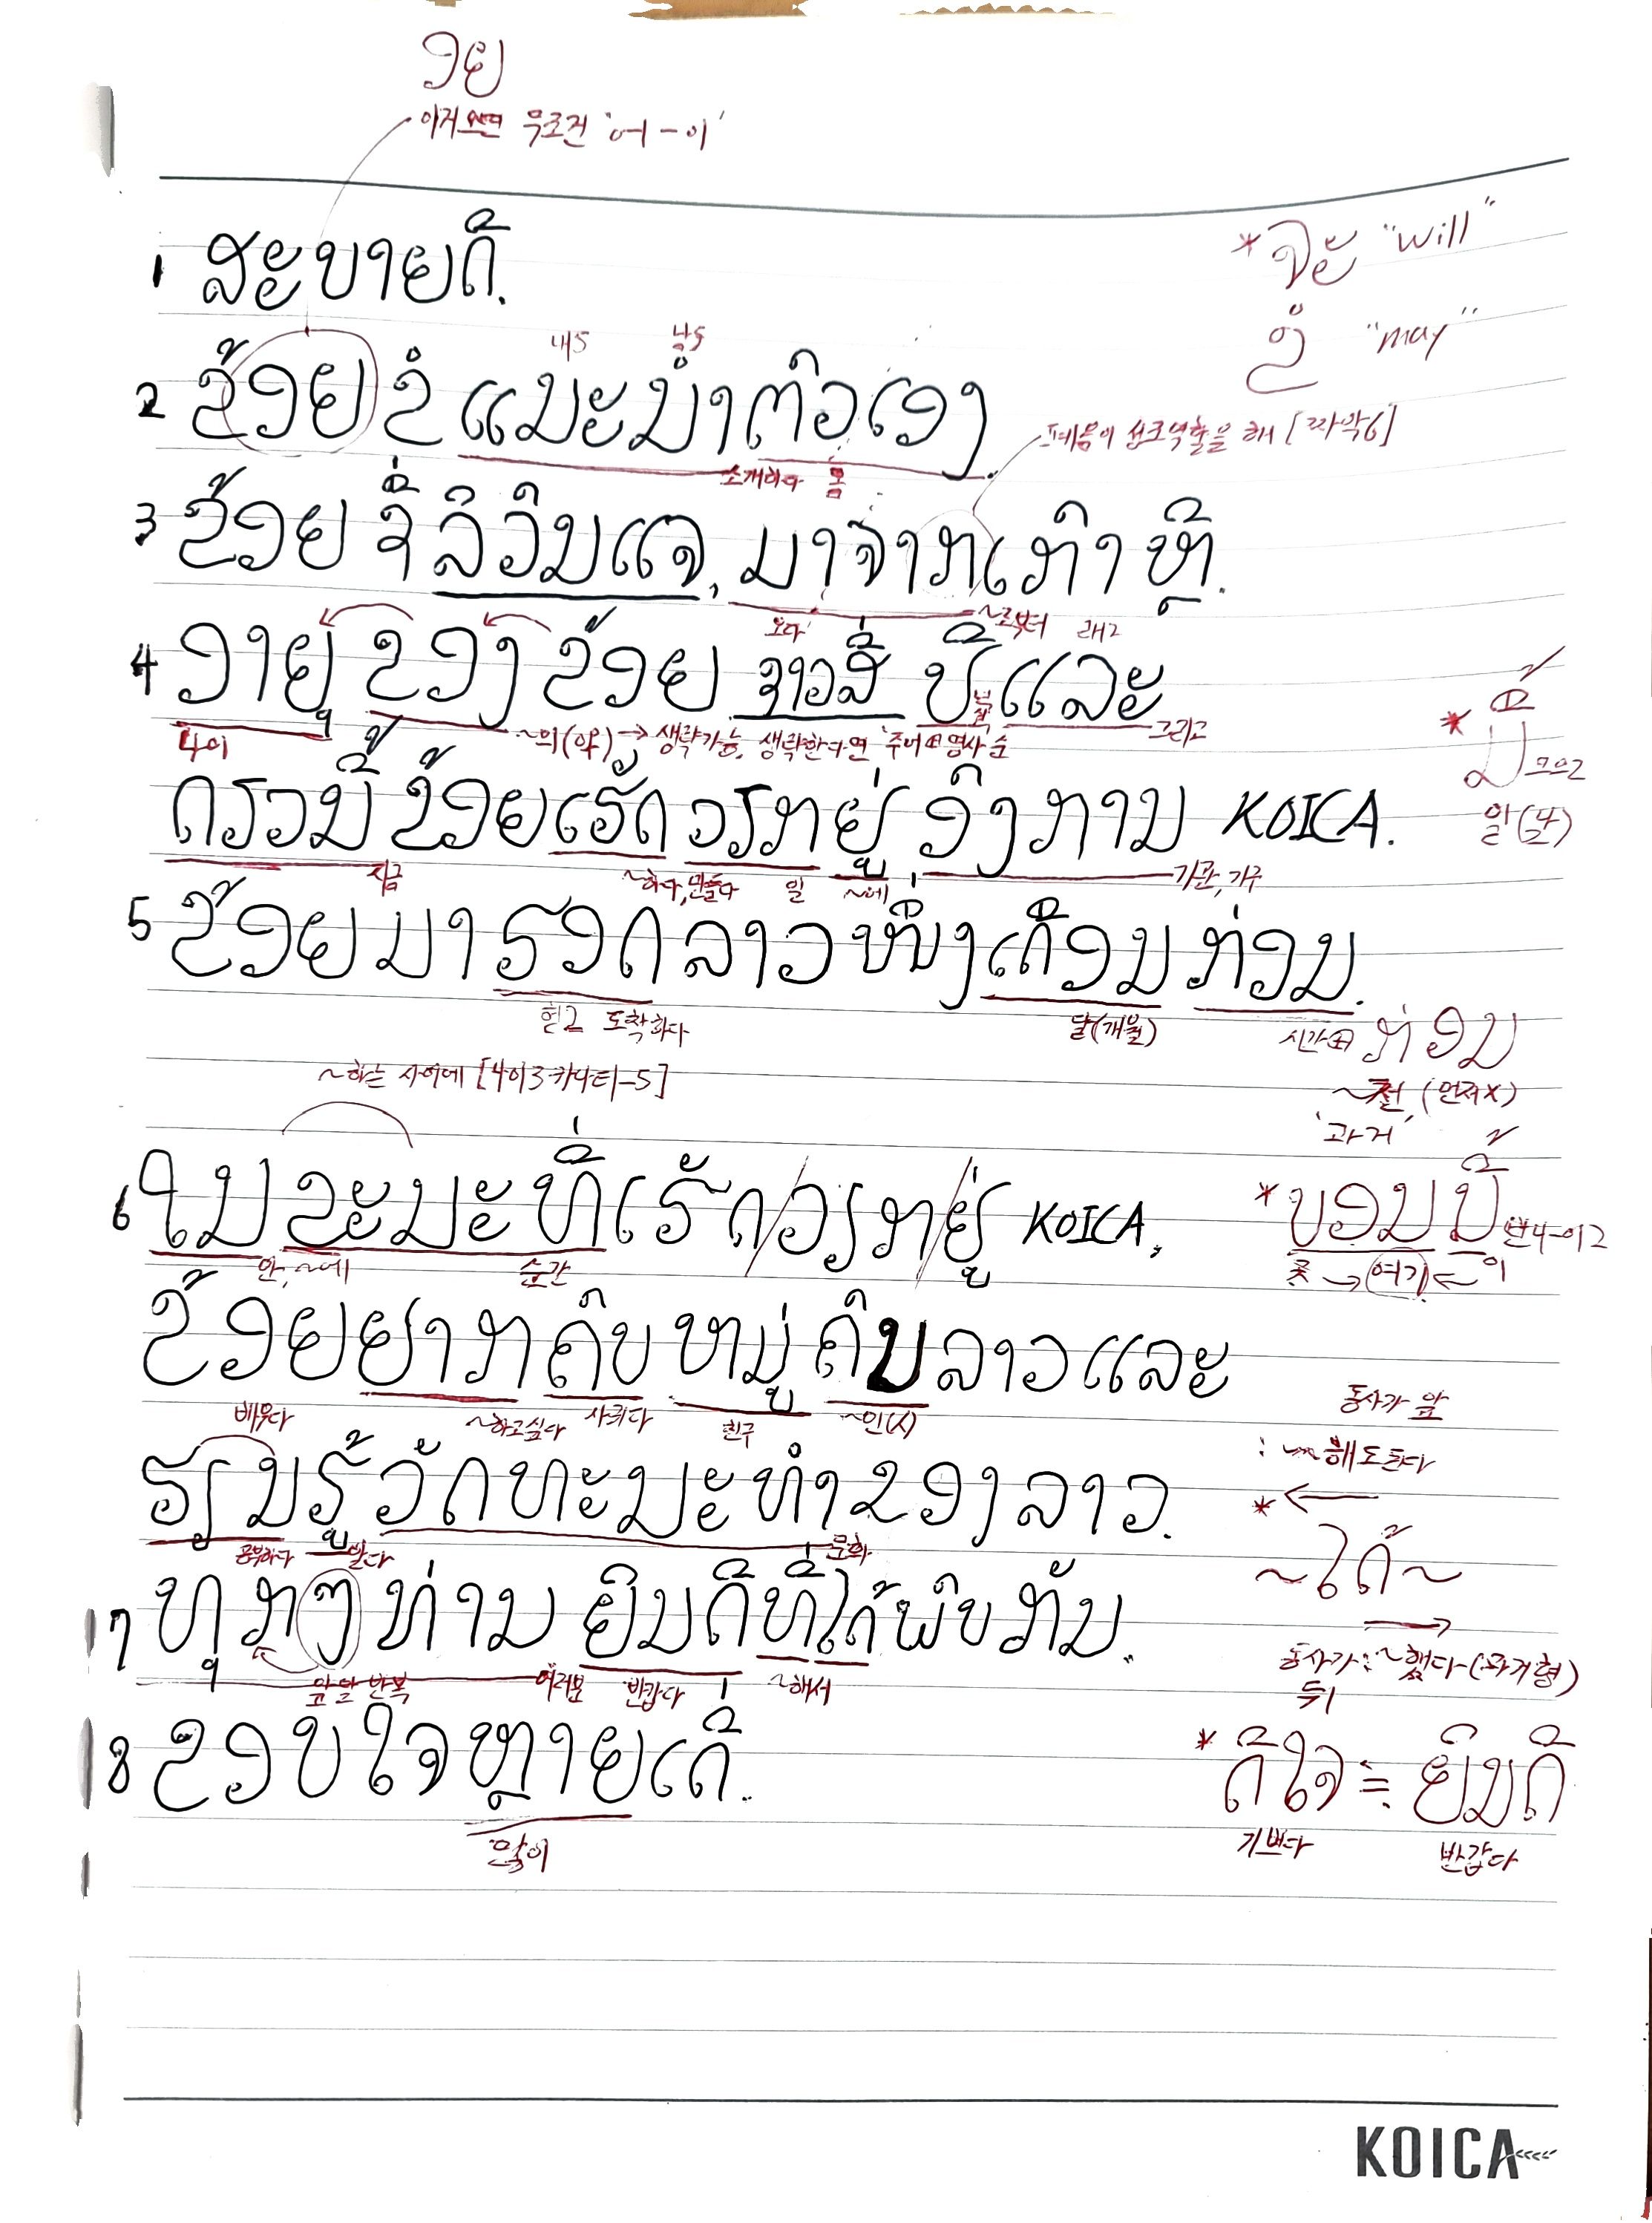 ອຍ
이거 우조건 '어-이'
1 ສະບາຍດີ.
* ຈະ "will"
ຂໍ "may"
내5 남5
2 ຂ້ອຍ ຂໍ ແນະນຳຕົວເອງ.
[짜악6]
소개하다 몸
3 ຂ້ອຍ ຊື່ ລີວົນແຈ, ມາຈາກເກົາຫຼີ.
오다 ~로부터 래2
4 ອາຍຸ ຂອງ ຂ້ອຍ ຊາວສີ່ ປີ ແລະ
나이 ~의(of) → 생략가능, 생략한다면 주어+명사 순 그리고
ຕຽວນີ້ ຂ້ອຍເຮັດວຽກຢູ່ ອົງການ KOICA.
지금 ~하다, 만들다 일 ~에 기관, 기구
5 ຂ້ອຍມາຮອດລາວໜຶ່ງເດືອນກ່ອນ.
헏2 도착하다 달(개월) 시간+ ກ່ອນ
~전, (먼저X)
'과거'
~하는 사이에 [나이3카나티-5]
6 ໃນຂະນະທີ່ເຮັດ/ວຽກ/ຢູ່ KOICA,
안, ~에 순간
* ບອນນີ້ 번나-이2
곳 → 여기 ← 이
ຂ້ອຍຢາກຄົບໝູ່ຄົນລາວແລະ
배우다 ~하고싶다 사귀다 친구 ~인(人)
ຮຽນຮູ້ວັດທະນະທຳຂອງລາວ.
공부하다 알다 문화
동사가 앞
: ~해도 된다
* ←
~ໄດ້~
→
동사가 뒤 : ~했다(과거형)
7 ທຸກໆທ່ານ ຍິນດີທີ່ໄດ້ພົບກັນ.
앞말 반복 여러분 반갑다 ~해서
8 ຂອບໃຈຫຼາຍເດີ້.
많이
* ດີໃຈ ≒ ຍິນດີ
기쁘다 반갑다
KOICA